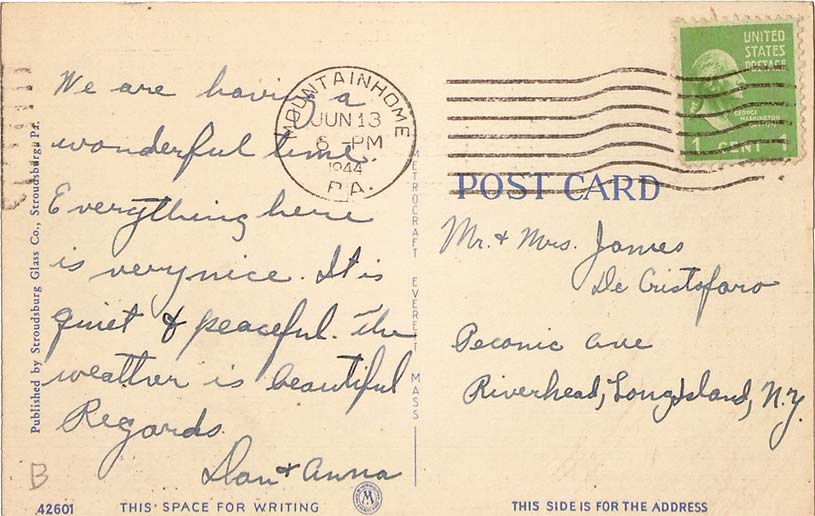 We are having a
wonderful time.
Everything here
is very nice. It is
quiet & peaceful. The
weather is beautiful
Regards.
Dan & Anna
MOUNTAINHOME
JUN 13
6 PM
1944
PA.
UNITED
STATES
POSTAGE
GEORGE
WASHINGTON
1 CENT 1
POST CARD
Mr. & Mrs. James
De Cristofaro
Peconic Ave
Riverhead, Long Island, N.Y.
Published by Stroudsburg Glass Co., Stroudsburg, Pa.
METROCRAFT EVERETT MASS
B
42601
THIS SPACE FOR WRITING
W
THIS SIDE IS FOR THE ADDRESS